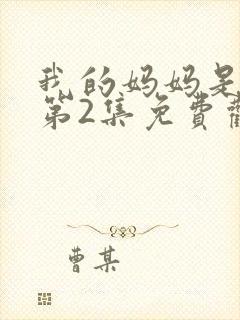 我的妈妈是
第2集免費
曹某